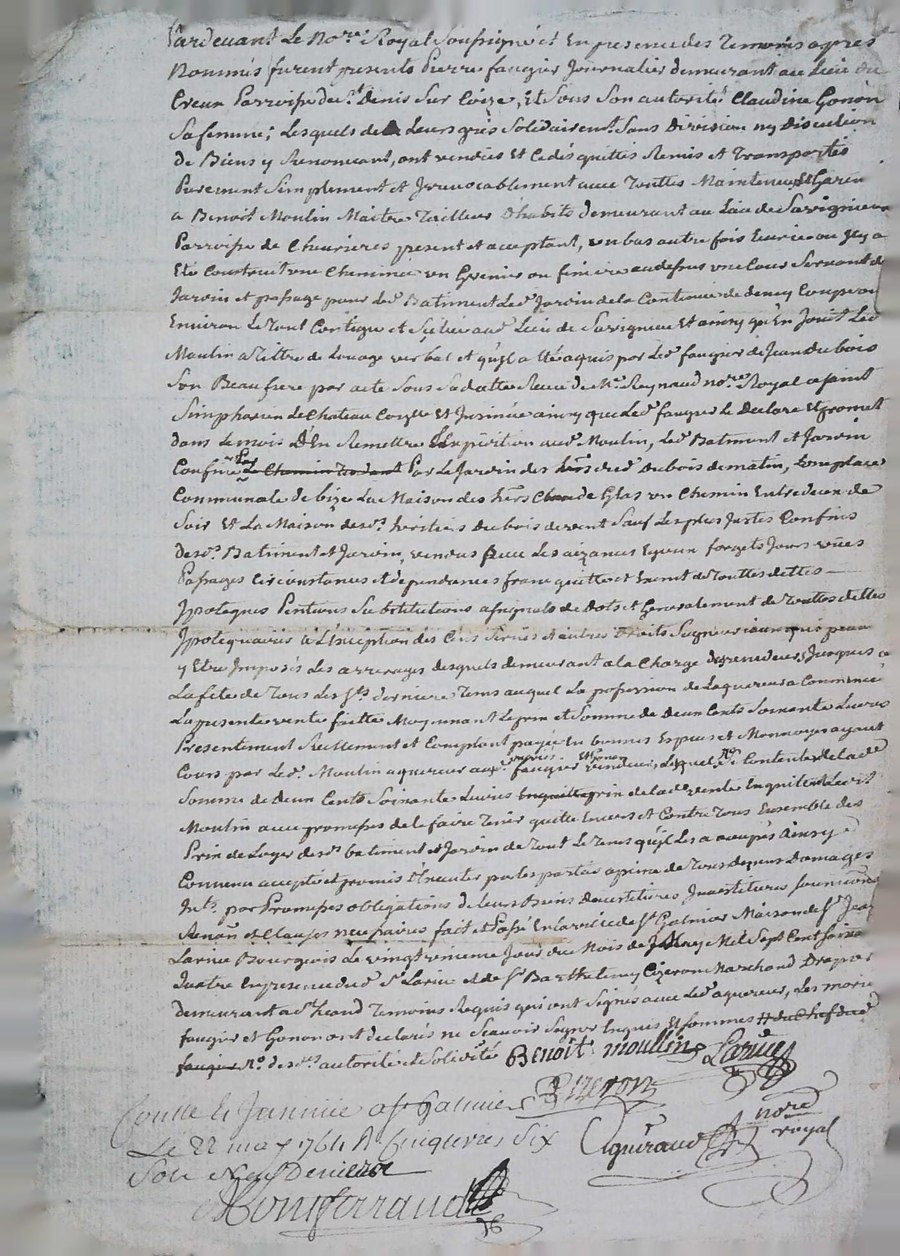 Pardevant Le No.re Royal Soussigné et En presence des Temoins apres
Nommés furent presents Pierre faugier Journalier demeurant au Lieu du
Creux Parroisse de S.t Denis Sur Coize, Et Sous Son autorité Claudine Gonon
Sa femme; Lesquels de Leurs grès Solidairem.t Sans Division ny Discution
de Biens y Renoncant, ont vendus Et Cedés quittés Remis et Transportés
Purement Simplement et Irrevocablement avec Touttes Maintenues Et Garen
a Benoit Moulin Maitre Tailleur D'habits demeurant au Lieu de Savigneux
Parroisse de Chevrieres present et acceptant, un bas autre fois Ecurie ou Il y a
Eté Construit une Cheminée un Grenier ou feniere au dessus une Cour Servant de
Jardin et passage pour Led. Batiment Led. Jardin de la Contenue de demy Coupe ou
Environ Le Tout Contigu et Scitué aud. Lieu de Savigneux Et ainsy qu'En Jouit Led
Moulin a Tittre de Louage verbal et qu'il a Eté aquis par Led. faugier de Jean Dubois
Son Beaufrere par acte Sous Sa datte Receu de M.e Raynaud no.re Royal a Saint
Simphorien Le Chateau Coizé Et Insinué ainsy que Led. faugier Le Declare Et promet
dans Le mois D'En Remettre Expedition aud. Moulin, Led. Batiment et Jardin
Confiné Par Le Jardin des hers dud. Dubois de matin, Une place
Communale de bize La Maison des hers de Glas un Chemin Entre deux de
Soir Et La Maison desd. heritiers Dubois de vent Sauf Les plus Justes Confins
desd. Batiment et Jardin, vendus avec Les aizances Egoux forgets Jours vües
Passages Circonstances et dependances franc quitte et Exemt de Touttes dettes
Ipoteques Pentions Substitutions assignats de Dots et Generalement de Touttes dettes
Ipotequaires a L'Exception des Cens Servis et autres Droits Seigneuriaux qui peuv
y Etre Imposés Les arrerages desquels demeurant a la Charge des vendeurs, Jusques a
La fete de Tous Les S.ts derniere Tems auquel La possession de Laquereur a Commencé
La presente vente faitte Moyennant Le prix et Somme de deux Cents Soixante Livres
Presentement Reellement et Comptant payée En bonnes Especes et Monnoyes ayant
Cours par Led. Moulin aquereur auxd. mariés faugier Et Gonon vendeurs, Lesquels Contents de lad.
Somme de deux Cents Soixante Livres prix de lad. vente En quittent Led.
Moulin avec promesses de le faire Tenir quitte Envers et Contre Tous Ensemble des
Prix de Loyer desd. batiment et Jardin de Tout Le Tems qu'il Les a occupés Ainsy
Convenu accepté et promis d'Executer par les parties a peine de Tous depens Domages
Int.s par Promesses obligations de Leurs Biens Devestitures Investitures Soumissions
Renon.s et Clauses necessaires fait et Passé En la ville de S.t Galmier Maison de S.r Jean
Larive Bourgeois Le vingtieme Jour du Mois de May Mil Sept Cent Soixa
Quatre En presence dud. S.r Larive et de S.r Barthelemy Cizeron Marchand Drapier
demeurant a S.t heand Temoins Requis qui ont Signés avec Led. aquereur, Les mariés
faugier et Gonon ont declarés ne Scavoir Signer Enquis Et Sommés
desd. autorité et Solidité Benoit moullin Larive
Cizeron
Conttrollé Insinué a St Galmier
Le 22 may 1764 R
Sols Neuf Deniers
nore
royal
Montferrand